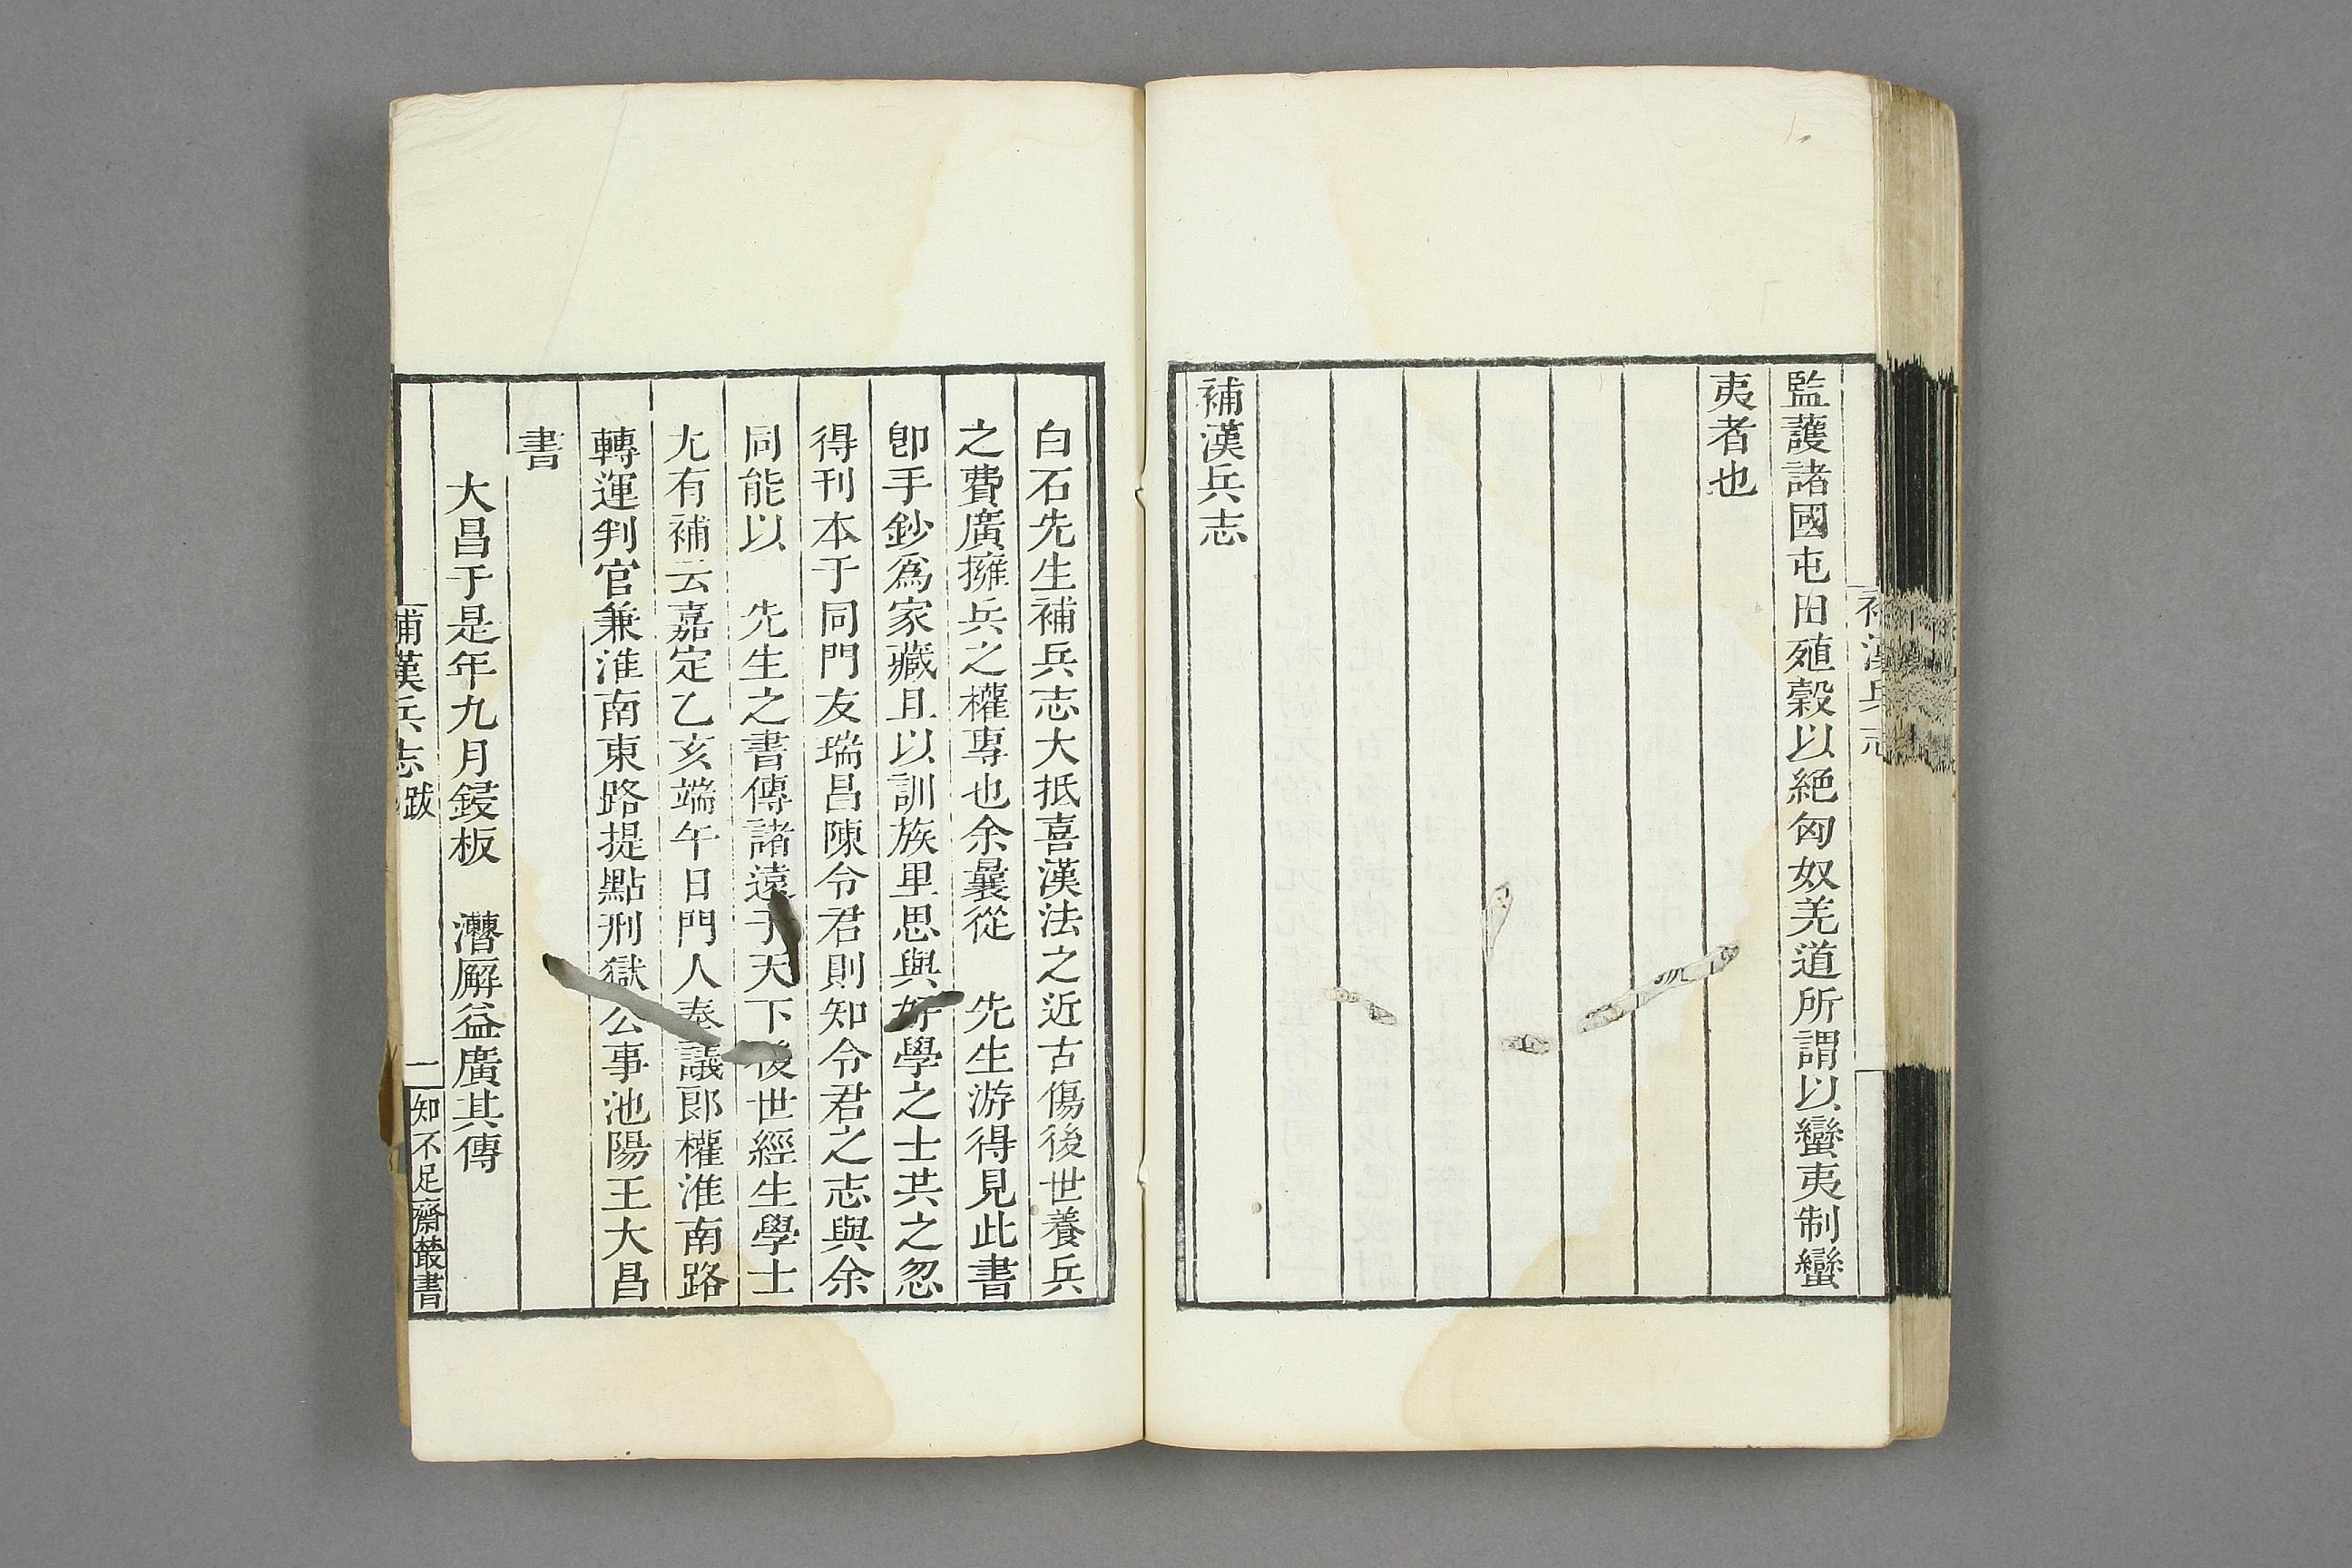 監護諸國屯田殖穀以絕匈奴羌道所謂以蠻夷制蠻
夷者也
補漢兵志
補漢兵志
白石先生補兵志大抵喜漢法之近古傷後世養兵
之費廣擁兵之權專也余曩從　先生游得見此書
卽手鈔爲家藏且以訓族里思與好學之士共之忽
得刊本于同門友瑞昌陳令君則知令君之志與余
同能以　先生之書傳諸遠于天下後世經生學士
尤有補云嘉定乙亥端午日門人奉議郎權淮南路
轉運判官兼淮南東路提點刑獄公事池陽王大昌
書
大昌于是年九月鋟板　漕廨益廣其傳
補漢兵志跋　一　知不足齋叢書